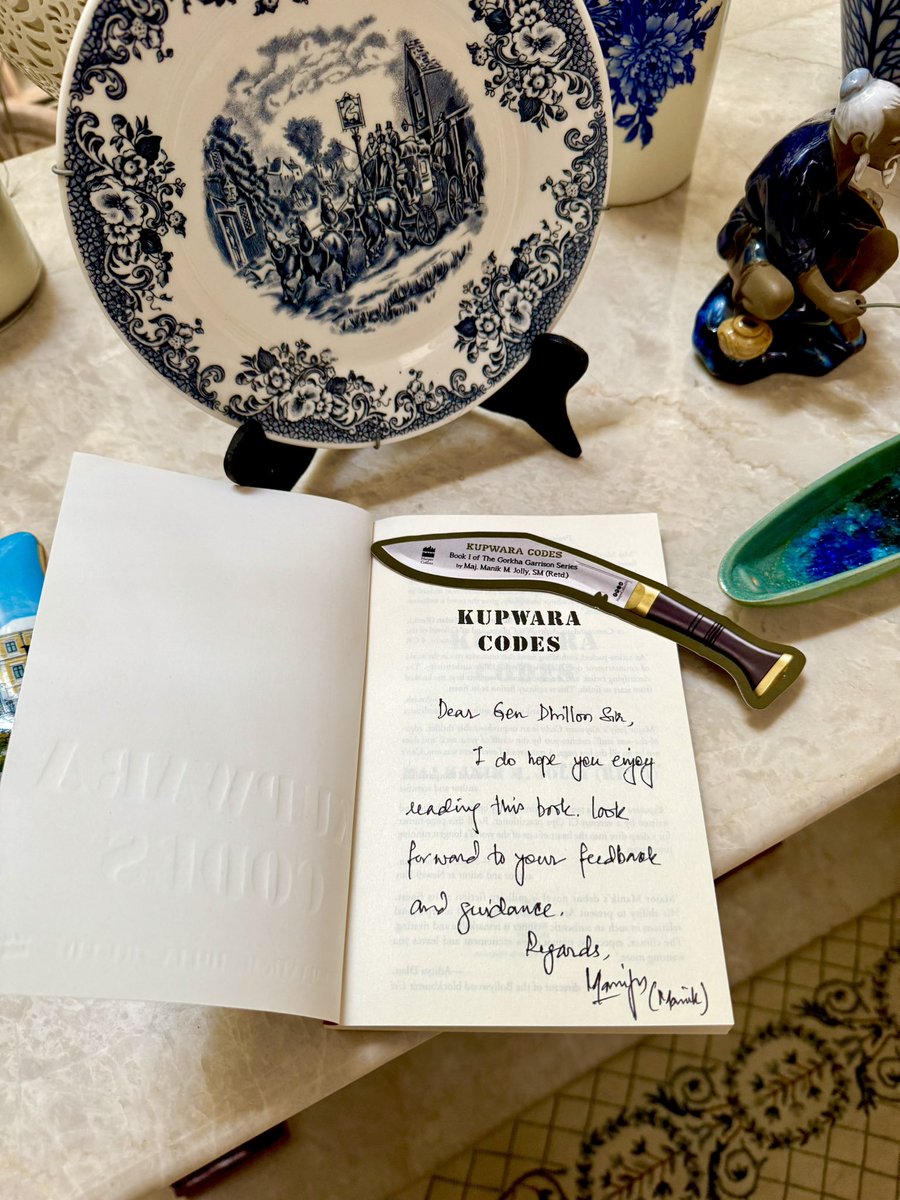 KUPWARA CODES
Book I of The Gorkha Garrison Series
by Maj. Manik M. Jolly, SM (Retd.)
KUPWARA
CODES
Dear Gen Dhillon Sir,
I do hope you enjoy
reading this book. Look
forward to your feedback
and guidance.
Regards,
(Manik)